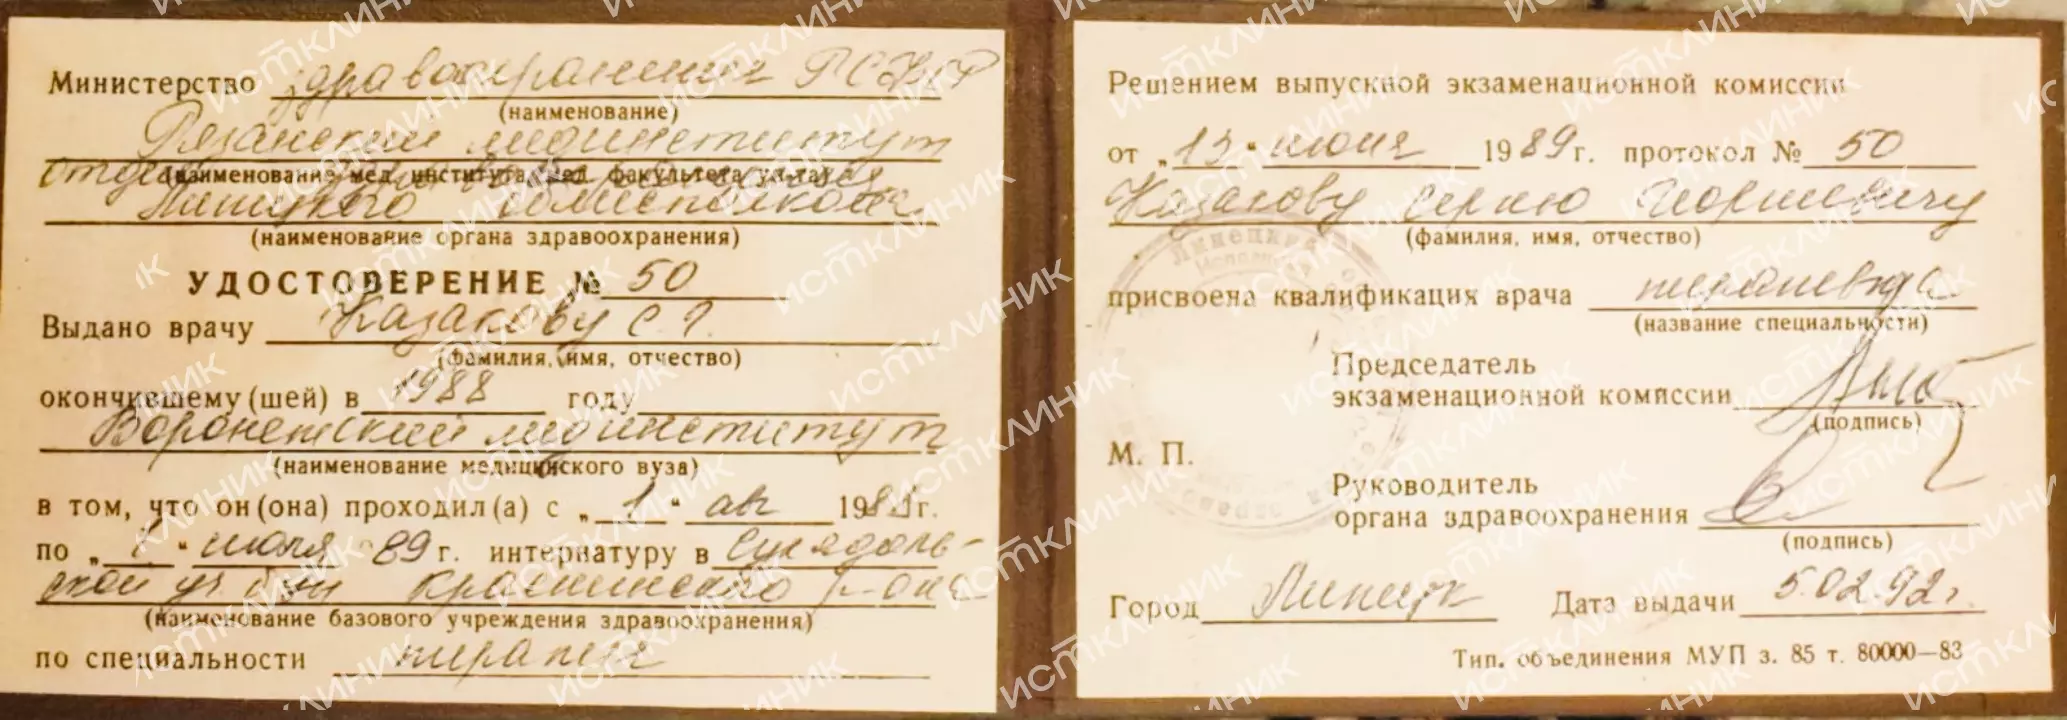 Министерство здравоохранения РСФСР
(наименование)
Рязанский мединститут
(наименование мед. института, мед. факультета ун-та)
отдел здравоохранения
Липецкого облисполкома
(наименование органа здравоохранения)
УДОСТОВЕРЕНИЕ № 50
Выдано врачу Казакову С. Г.
(фамилия, имя, отчество)
окончившему (шей) в 1988 году
Воронежский мединститут
(наименование медицинского вуза)
в том, что он (она) проходил(а) с „1“ авг 1988 г.
по „1“ июля 89 г. интернатуру в
ской уч. б-це Краснинского р-она
(наименование базового учреждения здравоохранения)
по специальности терапия
Решением выпускной экзаменационной комиссии
от „13“ июня 1989 г. протокол № 50
Казакову Сергею Георгиевичу
(фамилия, имя, отчество)
присвоена квалификация врача терапевта
(название специальности)
Председатель
экзаменационной комиссии
(подпись)
М. П.
Руководитель
органа здравоохранения
(подпись)
Город Липецк Дата выдачи 5.02.92 г.
Тип. объединения МУП з. 85 т. 80000—83
ИСТКЛИНИК